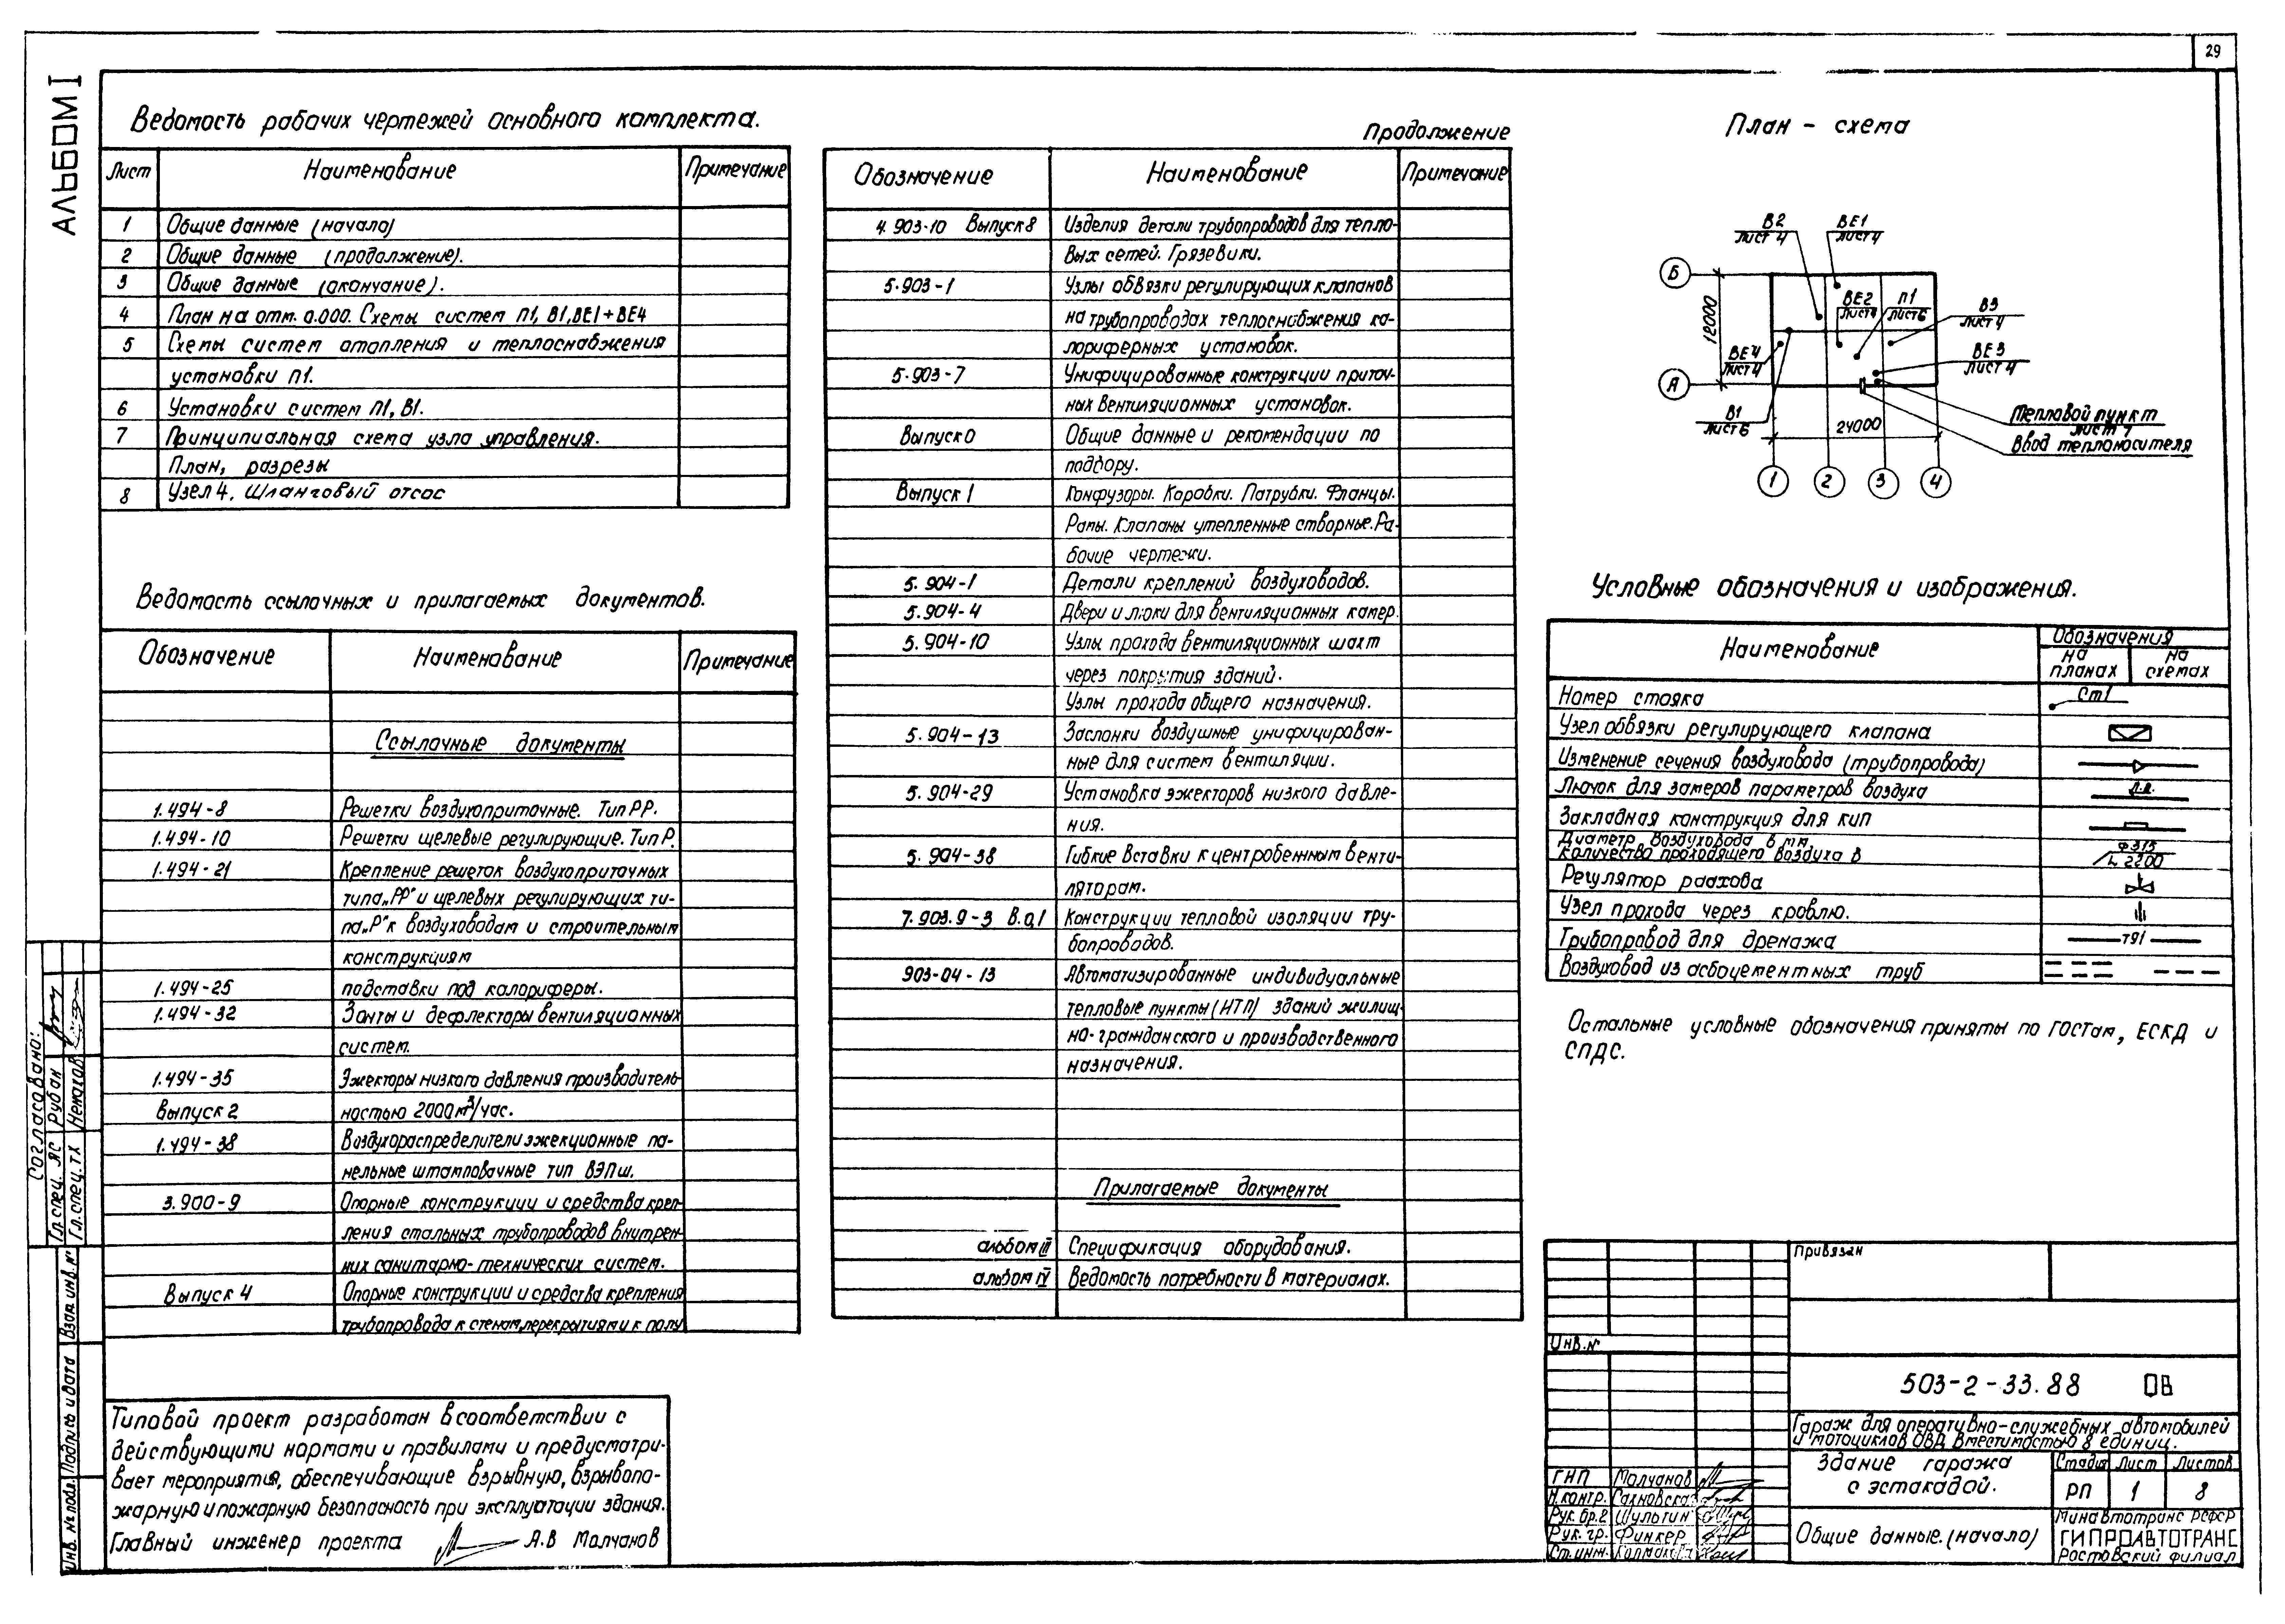 29
АЛЬБОМ I
Ведомость рабочих чертежей основного комплекта.
Лист Наименование Примечание
1 Общие данные (начало)
2 Общие данные (продолжение).
3 Общие данные (окончание).
4 План на отм. 0.000. Схемы систем П1, В1, ВЕ1÷ВЕ4
5 Схемы систем отопления и теплоснабжения
установки П1.
6 Установки систем П1, В1.
7 Принципиальная схема узла управления.
План, разрезы
8 Узел 4. Шланговый отсос
Ведомость ссылочных и прилагаемых документов.
Обозначение Наименование Примечание
Ссылочные документы
1.494-8 Решетки воздухоприточные. Тип РР.
1.494-10 Решетки щелевые регулирующие. Тип Р.
1.494-21 Крепление решеток воздухоприточных
типа „РР" и щелевых регулирующих ти-
па „Р" к воздуховодам и строительным
конструкциям
1.494-25 подставки под калориферы.
1.494-32 Зонты и дефлекторы вентиляционных
систем.
1.494-35 Эжекторы низкого давления производитель
Выпуск 2 ностью 2000 м³/час.
1.494-38 Воздухораспределители эжекционные па-
нельные штампованные тип ВЭПш.
3.900-9 Опорные конструкции и средства креп-
ления стальных трубопроводов внутрен-
них санитарно-технических систем.
Выпуск 4 Опорные конструкции и средства крепления
трубопровода к стенам, перекрытиям и к полу
Типовой проект разработан в соответствии с
действующими нормами и правилами и предусматри-
вает мероприятия, обеспечивающие взрывную, взрывопо-
жарную и пожарную безопасность при эксплуатации здания.
Главный инженер проекта А.В Молчанов
Продолжение
Обозначение Наименование Примечание
4.903-10 Выпуск 8 Изделия детали трубопроводов для тепло-
вых сетей. Грязевики.
5.903-1 Узлы обвязки регулирующих клапанов
на трубопроводах теплоснабжения ка-
лориферных установок.
5.903-7 Унифицированные конструкции приточ-
ных вентиляционных установок.
Выпуск 0 Общие данные и рекомендации по
подбору.
Выпуск 1 Конфузоры. Коробки. Патрубки. Фланцы.
Рамы. Клапаны утепленные створные. Ра-
бочие чертежи.
5.904-1 Детали креплений воздуховодов.
5.904-4 Двери и люки для вентиляционных камер.
5.904-10 Узлы прохода вентиляционных шахт
через покрытия зданий.
Узлы прохода общего назначения.
5.904-13 Заслонки воздушные унифицирован-
ные для систем вентиляции.
5.904-29 Установка эжекторов низкого давле-
ния.
5.904-38 Гибкие вставки к центробежным венти-
ляторам.
7.903.9-3 В.0,1 Конструкции тепловой изоляции тру-
бопроводов.
903-04-13 Автоматизированные индивидуальные
тепловые пункты (ИТП) зданий жилищ-
но-гражданского и производственного
назначения.
Прилагаемые документы
альбом III Спецификация оборудования.
альбом IV Ведомость потребности в материалах.
План - схема
В2 ВЕ1
лист 4 лист 4
Б
12000
ВЕ2 П1 В3
лист 4 лист 6 лист 4
ВЕ4 ВЕ3
лист 4 лист 4
А
В1
лист 6
24000
Тепловой пункт
лист 7
Ввод теплоносителя
1 2 3 4
Условные обозначения и изображения.
Наименование Обозначения
на планах на схемах
Номер стояка Ст1
Узел обвязки регулирующего клапана
Изменение сечения воздуховода (трубопровода)
Лючок для замеров параметров воздуха Л.п.
Закладная конструкция для КИП
Диаметр воздуховода в мм Ф315
количество проходящего воздуха в L 2200
Регулятор расхода
Узел прохода через кровлю.
Трубопровод для дренажа Т91
Воздуховод из асбоцементных труб
Остальные условные обозначения приняты по ГОСТам, ЕСКД и
СПДС.
Привязан
Инв. №
503-2-33.88 ОВ
Гараж для оперативно-служебных автомобилей
и мотоциклов ОВД вместимостью 8 единиц.
Здание гаража
с эстакадой.
Стадия Лист Листов
РП 1 8
Общие данные. (начало)
Минавтотранс РСФСР
ГИПРОАВТОТРАНС
Ростовский филиал
ГИП Молчанов
Н.контр. Сахновская
Рук. бр.2 Шульгин
Рук. гр. Финкер
Ст.инж. Колмакова
Согласовано:
Гл. спец. ЯС Рубан
Гл. спец. ТХ
Инв. № подл. Подпись и дата Взам. инв. №